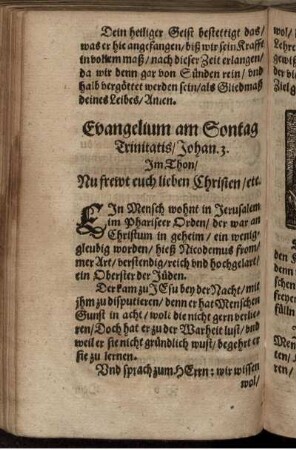 Dein heiliger Geist bestettigt das/
was er hie angefangen/ biß wir sein Krafft
in vollem maß/ nach dieser Zeit erlangen/
da wir denn gar von Sünden rein/ vnd
halb vergöttet werden sein/ als Gliedmaß
deines Leibes/ Amen.
Evangelium am Sontag
Trinitatis/ Johan. 3.
Im Thon/
Nu frewt euch lieben Christen/ etc.
EIn Mensch wohnt in Jerusalem
im Phariseer Orden/ der war an
Christum in geheim/ ein wenig
gleubig worden/ hieß Nicodemus from-
mer Art/ verstendig/ reich vnd hochgelart/
ein Oberster der Jüden.
Der kam zu JEsu bey der Nacht/ mit
jhm zu disputieren/ denn er hat Menschen
Gunst in acht/ wolt die nicht gern verlie-
ren/ Doch hat er zu der Warheit lust/ vnd
weil er sie nicht gründlich wust/ begehrt er
sie zu lernen.
Vnd sprach zum HErrn: wir wissen
wol/